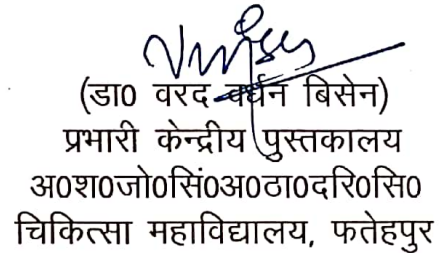 (डा0 वरद वर्धन बिसेन)
प्रभारी केन्द्रीय पुस्तकालय
अ0श0जो0सिं0अ0ठा0दरि0सि0
चिकित्सा महाविद्यालय, फतेहपुर